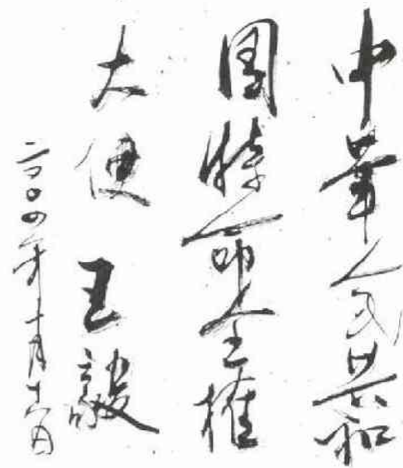 中華人民共和
国特命全権
大使 王毅
二〇〇四年十月十六日